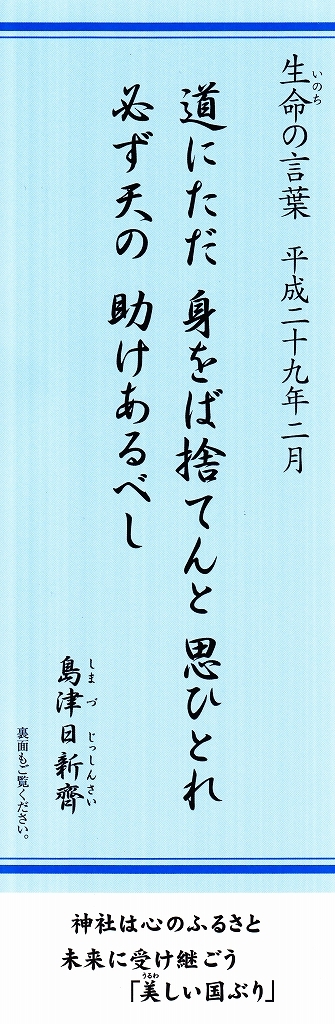 生命の言葉　平成二十九年二月
いのち
道にただ 身をば捨てんと 思ひとれ
必ず天の 助けあるべし
島津日新齋
しまづ じっしんさい
裏面もご覧ください。
神社は心のふるさと
未来に受け継ごう
「美しい国ぶり」
うるわ